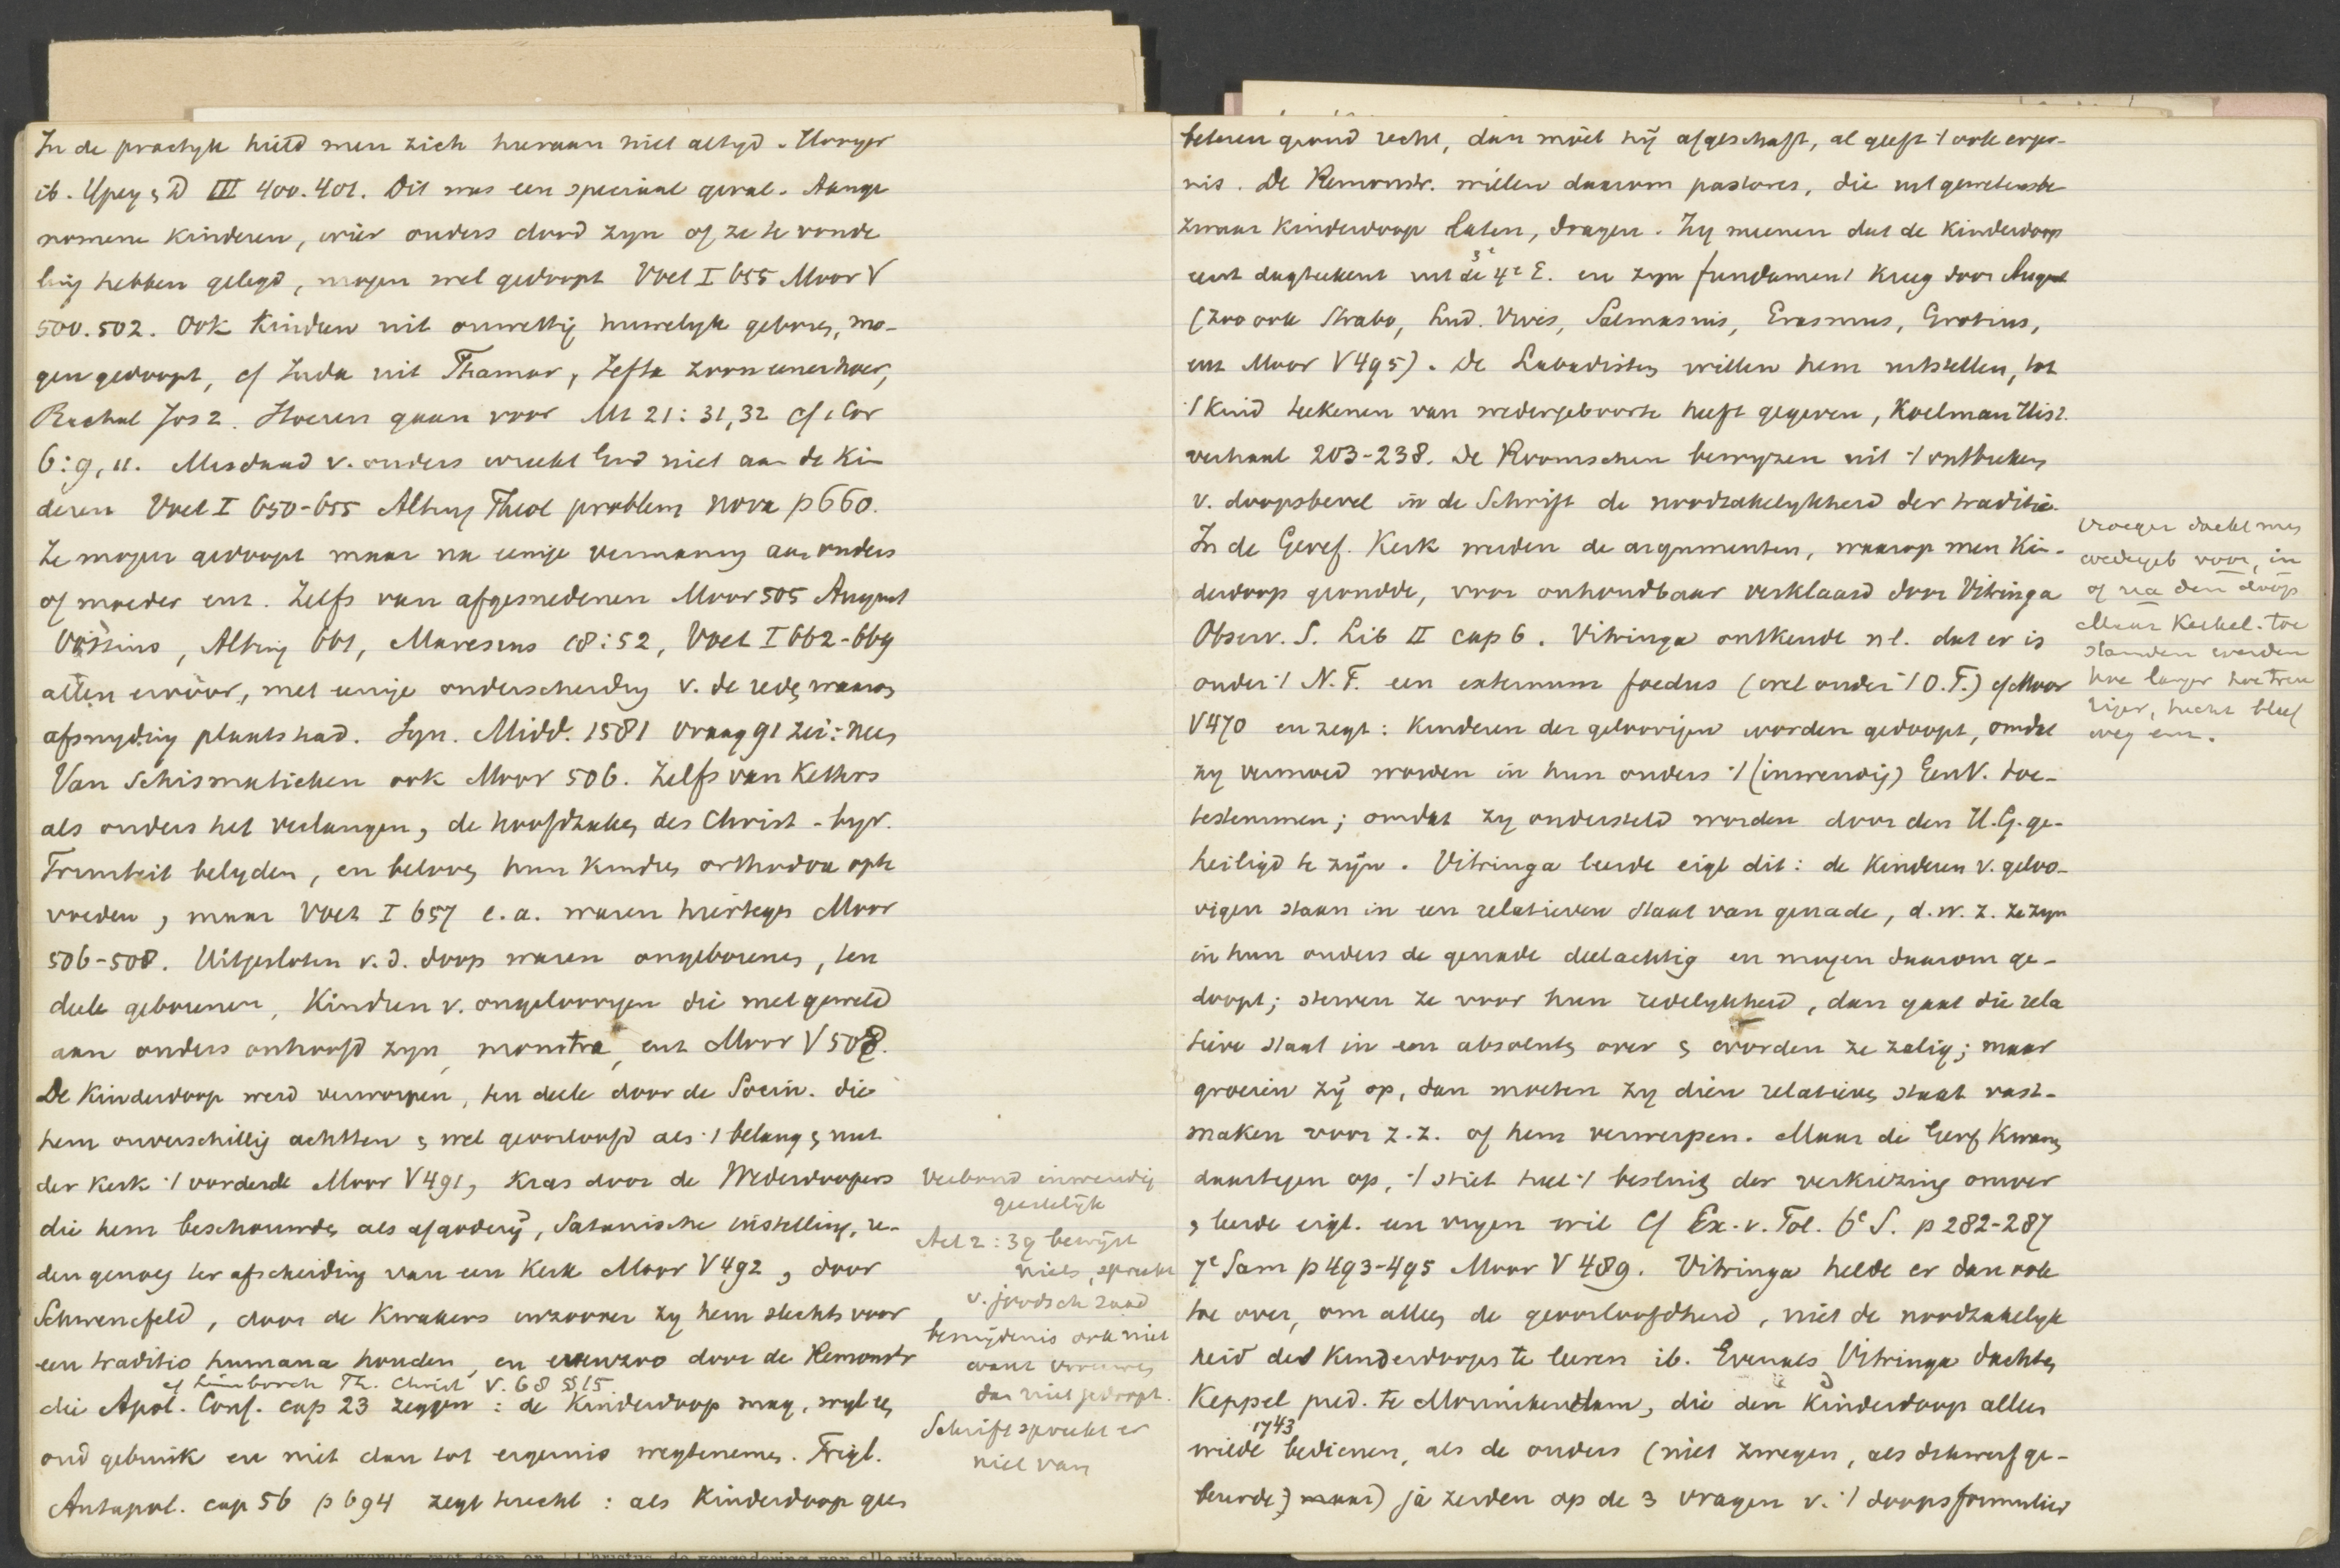 In de practyk hield men zich hieraan niet altyd. Unger
ib. Ypey & D III 400.401. Dit was een speciaal geval. Aange
nomene kinderen, wier ouders dood zyn of ze te vonde
ling hebben gelegd, mogen wel gedoopt Voet I 655 Moor V
500.502. Ook kinderen uit onwettig huwelyk geboren, mo-
gen gedoopt, cf Juda uit Thamar, Jefta zoon eener hoer,
Rachab Jos 2. Hoeren gaan voor Mt 21:31,32 cf 1 Cor
6:9,11. Misdaad v. ouders wreekt God niet aan de kin
deren Voet I 650-655 Alting Theol problem nova p 660.
Ze mogen gedoopt maar na eenige vermaning aan ouders
of moeder enz. Zelfs van afgesnedenen Moor 505 August
Vossius, Alting 661, Maresius 18:52, Voet I 662-669
allen ervoor, met eenige onderscheiding v. de reden waarom
afsnyding plaats had. Syn. Midd. 1581 vraag 91 zei: neen
Van Schismatieken ook Moor 506. Zelfs van Ketters
als ouders het verlangen, de hoofdzaken des Christ. byv.
Triniteit belyden, en beloven hun kindren orthodox opte
voeden, maar Voet I 657 e.a. waren hiertegen Moor
506-508. Uitgesloten v. d. doop waren ongeborenen, ten
deele geborenen, Kindren v. ongeloovigen die met geweld
aan ouders ontroofd zyn, monstra, enz Moor V 508.
De Kinderdoop werd verworpen, ten deele door de Socin. die
hem onverschillig achtten & wel geoorloofd als ·/ belang & nut
der Kerk ·/ vorderde Moor V 491, Kras door de Wederdoopers
die hem beschouwden als afgodery, Satanische instelling, re-
den genoeg ter afscheiding van een Kerk Moor V 492, door
Schwencfeld, door de Kwakers inzoover zy hem slechts voor
een traditio humana houden, en evenzoo door de Remonstr
cf Limborch Th. Christ V. 68 § 15
die Apol. Conf. cap 23 zeggen: de Kinderdoop mag, wyl een
oud gebruik en niet dan tot ergernis wegtenemen. Trigl.
Antapol. cap 56 p 694 zegt terecht: als Kinderdoop geen
Verbond inwendig
geestelyk
Act 2:39 bewyst
niets, spreekt
v. joodsch zaad
besnydenis ook niet
want vrouwen
dan niet gedoopt.
Schrift spreekt er
niet van
beteren grond recht, dan moet hy afgeschaft, al geeft ·/ ook erger-
nis. De Remonstr. wielen daarom pastores, die uit gewetensbe
zwaar Kinderdoop laten, dragen. Zy meenen dat de Kinderdoop
eerst dagteekent uit de 3e 4e E. en zyn fundament kreeg door August
(zoo ook Strabo, Lud. Vives, Salmasius, Erasmus, Grotius,
enz Moor V 495). De Labadisten willen hem uitstellen, tot
·/ kind teekenen van wedergeboorte heeft gegeven, Koelman Hist.
verhaal 203-238. De Roomschen bewyzen uit ·/ ontbreken
v. doopsbevel in de Schrift de noodzakelykheid der traditie.
In de Geref. Kerk werden de argumenten, waarop men Kin-
derdoop grondde, voor onhoudbaar verklaard door Vitringa
Observ. S. Lib II cap 6. Vitringa ontkende nl. dat er is
onder ·/ N.T. een externum foedus (wel onder ·/ O.T.) cf Moor
V 470 en zegt: Kinderen der geloovigen worden gedoopt, omdat
zy vermoed worden in hun ouders ·/ (inwendig) GenV. toe-
testemmen; omdat zy ondersteld worden door den H.G. ge-
heiligd te zyn. Vitringa leerde eigl dit: de Kinderen v. geloo-
vigen staan in een relatieven staat van genade, d.w.z. ze zyn
in hun ouders de genade deelachtig en mogen daarom ge-
doopt; sterven ze voor hun redelykheid, dan gaat die rela
tieve staat in een absoluten over & worden ze zalig; maar
groeien zy op, dan moeten zy dien relatieven staat vast-
maken voor z.z. of hem verwerpen. Maar de Geref Kwamen
daartegen op, ·/ stiet heel ·/ besluit der verkiezing omver
& leerde eigl. een vryen wil Cf Ex. v. Tol. 6e S. p 282-287
7e Sam p 493-495 Moor V 489. Vitringa helde er dan ook
toe over, om alleen de geoorloofdheid, niet de noodzakelyk
heid des Kinderdoops te leeren ib. Evenals Vitringa dachten
Keppel pred. te Monnikendam, die den Kinderdoop alleen
1743
wilde bedienen, als de ouders (niet zwegen, als dikwerf ge-
beurde; maar) ja zeiden op de 3 vragen v. ·/ doopsformulier
Vroeger dacht men
wedergeb voor, in
of na den doop
Maar Kerkel. toe
standen werden
hoe langer hoe treu
riger, tucht bleef
weg enz.